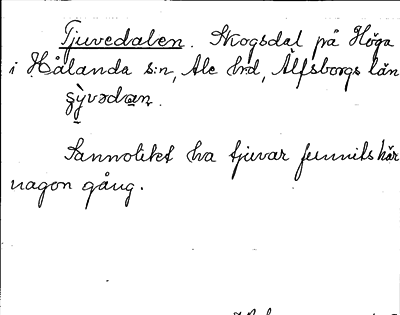 Tjuvedalen. Skogsdal på Höga
i Hålanda s:n, Ale hrd, Älfsborgs län
Sannolikt ha tjuvar funnits här
nagon gång.